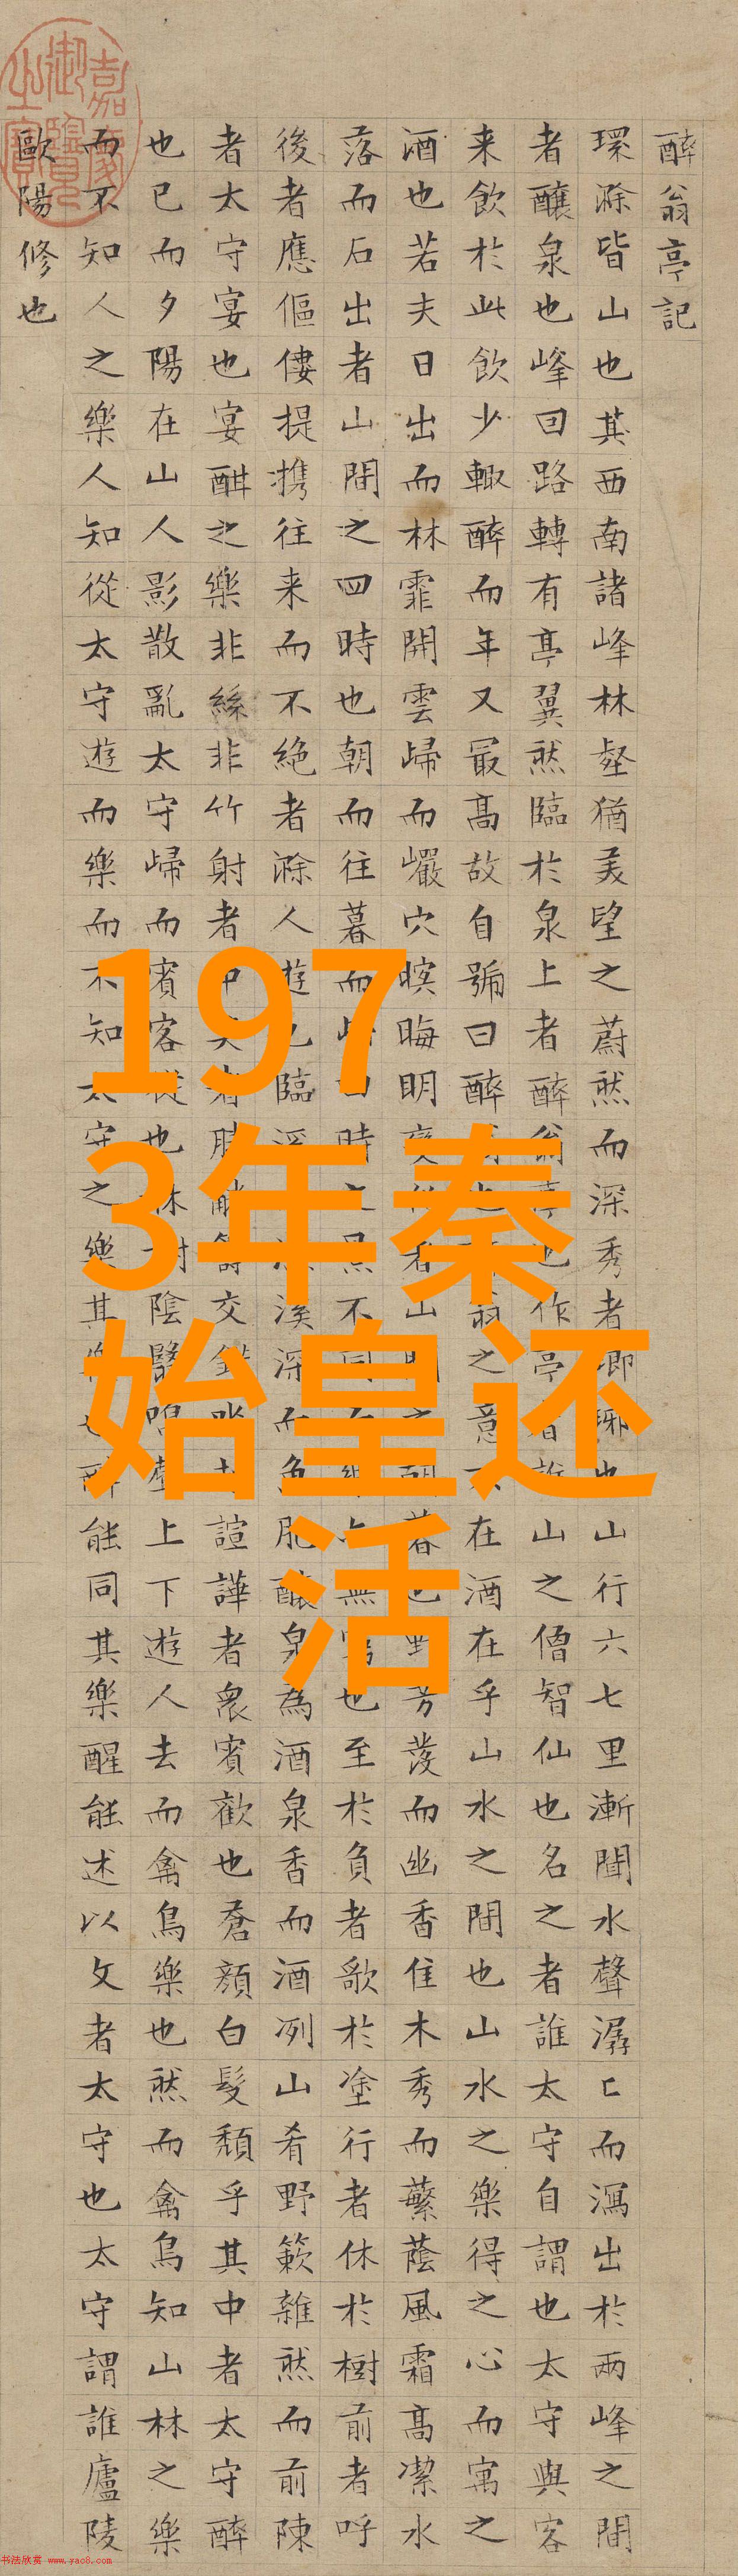 醉翁亭記
環滁皆山也其西南諸峰林壑猶美望之蔚然而深秀者瑯琊也山行六七里漸聞水聲潺〻而瀉出於兩峰之間
者釀泉也峰回路轉有亭翼然臨於泉上者醉翁亭也作亭者誰山之僧智仙也名之者誰太守自謂也太守與客
来飲於此飲少輒醉而年又最高故自號曰醉翁之意在酒在乎山水之間也山水之樂得之心而寓之
酒也若夫日出而林霏開雲歸而巖穴暝晦明變者山間朝暮也野芳發而幽香佳木秀而蘩蔭風霜高潔水
落而石出者山間之四時也朝而往暮而歸四時之景不同而樂無窮也至於負者歌於塗行者休於樹前者呼
後者應傴僂提攜往来而不絶者滁人遊也臨溪漁溪深而魚肥釀泉為酒泉香而酒洌山肴野蔌雜然而前陳
者太守宴也宴酣之樂非絲非竹射者中奕者勝觥籌交錯坐起諠譁者衆賓歡也蒼顏白髮頹乎其中者太守醉
也已而夕陽在山人影散亂太守歸而賓客從也林樹陰翳鳴聲上下遊人去而禽鳥樂也然而禽鳥知山林之樂
而不知人之樂人知從太守遊而樂而不知太守之樂其樂也醉能同其樂醒能述以文者太守也太守謂誰廬陵
歐陽修也
嘉慶御覽之寶
197
3年秦
始皇还
活
书法欣赏 www.yac8.com